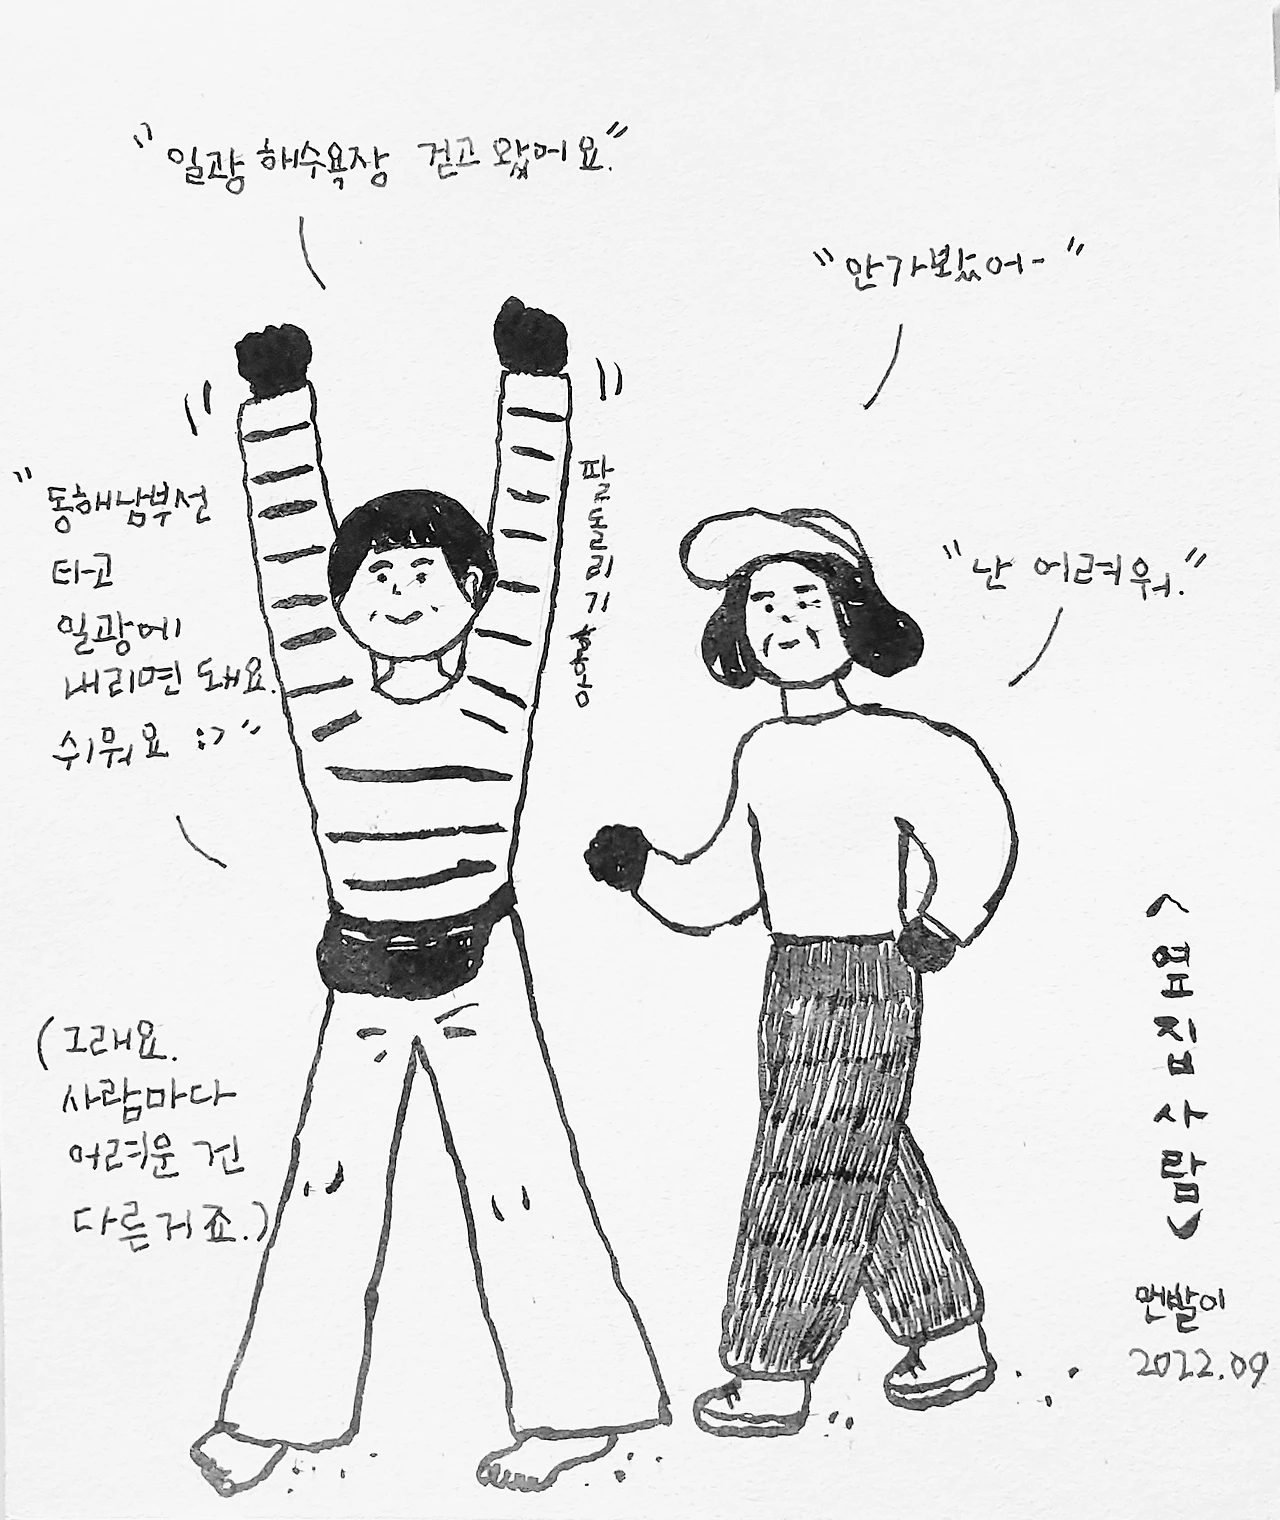 "일광 해수욕장 걷고 왔어요."
"안가봤어-"
"동해남부선
타고
일광에
내리면 돼요.
쉬워요 :>"
팔돌리기
"난 어려워."
(그래요.
사람마다
어려운 건
다른거죠.)
<옆집사람>
맨발이
2022.09